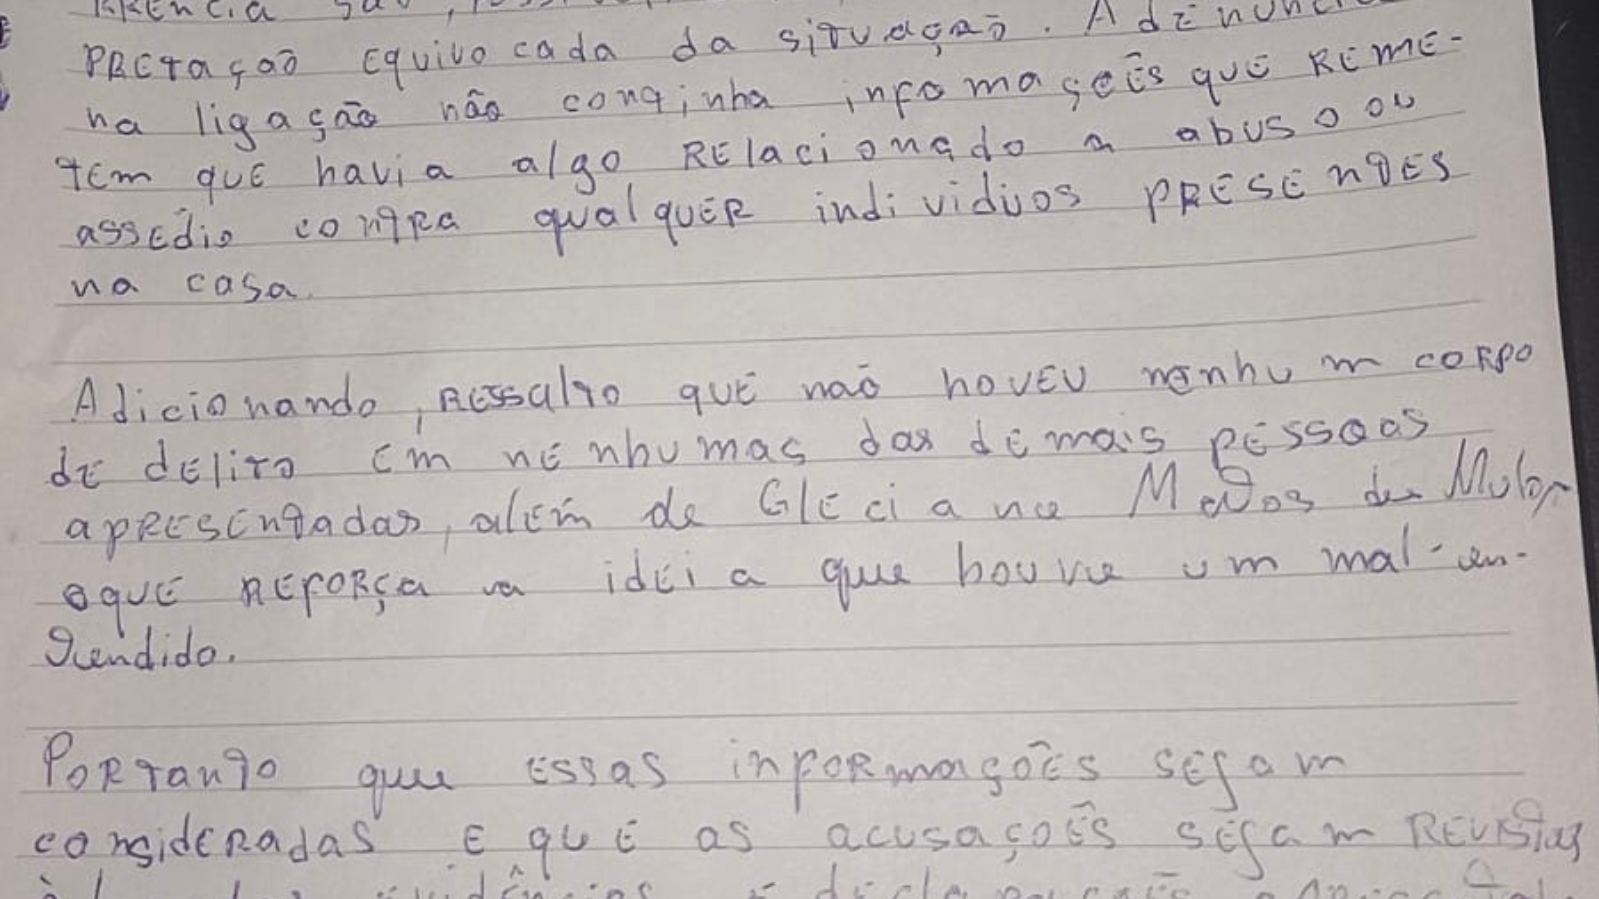 PRETAÇÃO EQUIVOCADA da situação. A DENÚNCIA
na ligação não continha infomações que REME-
TEM que havia algo RElacionado a abuso ou
assédio contra qualquer individuos PRESENTES
na casa.
Adicionando, RESSalto que não houveu nenhum corpo
de delito em nenhumas das demais pessoas
apresentadas, além de Gleciane Matos de
oque REFORça a idéia que houve um mal-en-
tendido.
Portanto que essas informações sejam
consideradas e que as acusações sejam REVistas